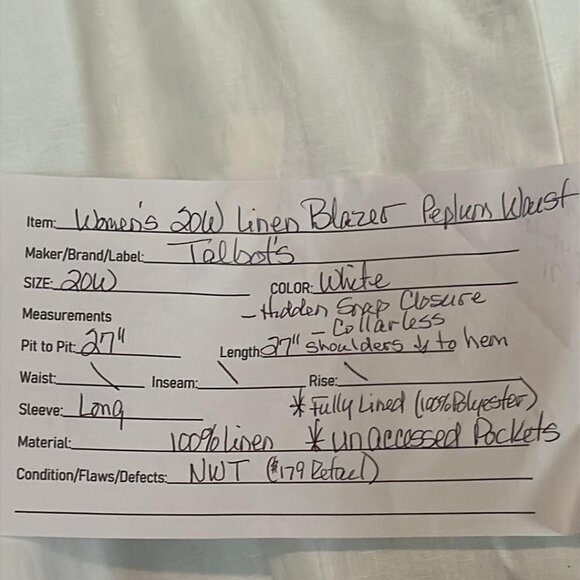 Item: Women's 20W Linen Blazer Peplum Waist
Maker/Brand/Label: Talbot's
SIZE: 20W COLOR: White
Measurements - Hidden Snap Closure
- Collarless
Pit to Pit: 27" Length: 27" shoulders ↓ to hem
Waist: \ Inseam: \ Rise: \
Sleeve: Long * Fully Lined (100% Polyester)
Material: 100% linen * unaccessed Pockets
Condition/Flaws/Defects: NWT ($179 Retail)